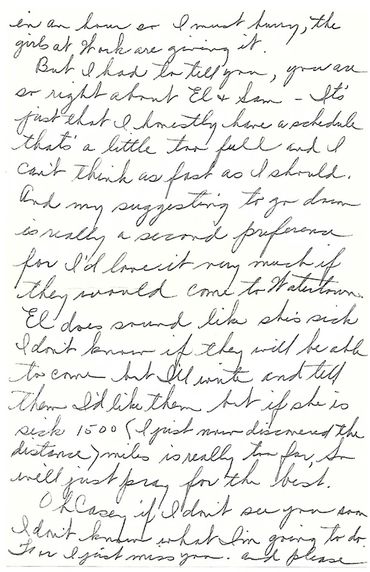 in an hour so I must hurry, the
girls at Work are giving it.
But I had to tell you, you are
so right about El & Sam - It's
just that I honestly have a schedule
thats' a little too full and I
can't think as fast as I should.
And my suggesting to go down
is really a second preference
for I'd love it very much if
they would come to Watertown.
El does sound like she's sick
I don't know if they will be able
to come but I'll write and tell
them I'd like them but if she is
sick 1500 (I just now discovered the
distance) miles is really too far, So
we'll just pray for the best.
Oh Casey if I don't see you soon
I don't know what I'm going to do.
For I just miss you. and please